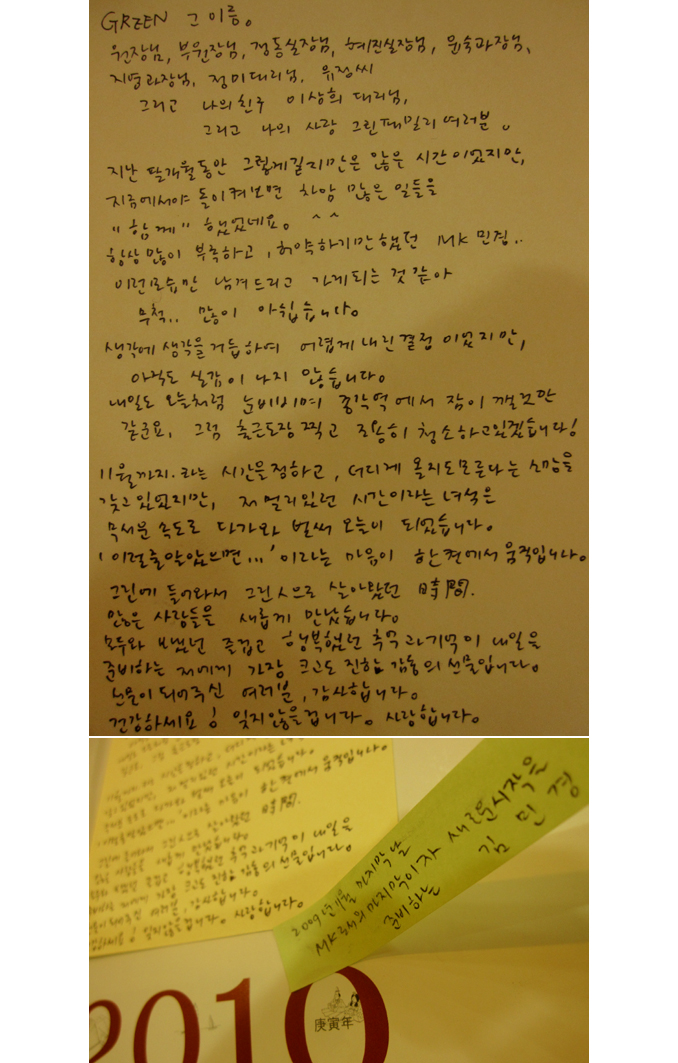 GREEN 그 이름。
원장님, 부원장님, 정동실장님, 혜진실장님, 윤숙과장님,
지영과장님, 정미대리님, 유정씨
그리고 나의친구 이상희 대리님,
그리고 나의 사랑 그린패밀리 여러분。
지난 동안 그렇게길지만은 않은 시간이었지만,
지금에서야 돌이켜보면 차암 많은 일들을
"함께" 했었네요。^^
항상 많이 부족하고, 허약하기만했던 MK 민경..
이런모습만 남겨드리고 가게되는 것 같아
무척.. 많이 아쉽습니다。
생각에 생각을거듭하여 어렵게 내린결정 이었지만,
아직도 실감이 나지 않습니다。
내일도 오늘처럼 눈비비며 종각역에서 잠이 깰것만
같군요, 그럼 출근도장 찍고 조용히 청소하고있겠습니다!
11월까지.라는 시간을정하고, 더디게 올지도모른다는 소망을
갖고있었지만, 저 멀리있던 시간이라는 녀석은
무서운 속도로 다가와 벌써 오늘이 되었습니다。
'이럴줄알았으면...' 이라는 마음이 한켠에서 움직입니다。
그린에 들어와서 그린人으로 살아왔던 時間.
많은 사람들을 새롭게 만났습니다。
모두와 보냈던 즐겁고 행복했던 추억과기억이 내일을
준비하는 저에게 가장 크고도 진한 감동의 선물입니다。
선물이 되어주신 여러분, 감사합니다。
건강하세요! 잊지않을겁니다。사랑합니다。
2009년 11월 마지막 날
MK로서의 마지막이자 새로운시작을
준비하는
김 민 경
2010
庚寅年